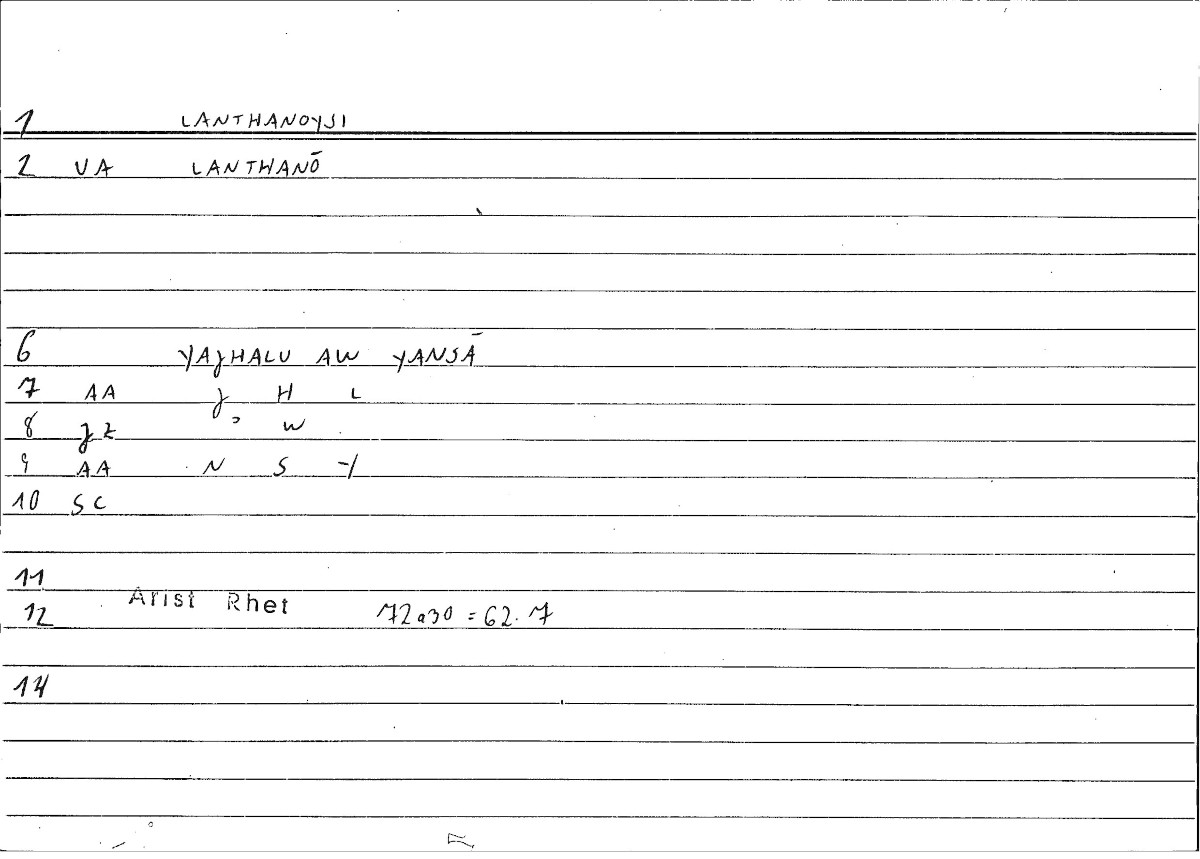 1 LANTHANOYSI
2 VA LANTHANŌ
6 YAJHALU AW YANSĀ
7 AA J H L
8 JZ ʾ W
9 AA N S Y
10 SC
11
12 Arist Rhet 72a30 = 62.7
14